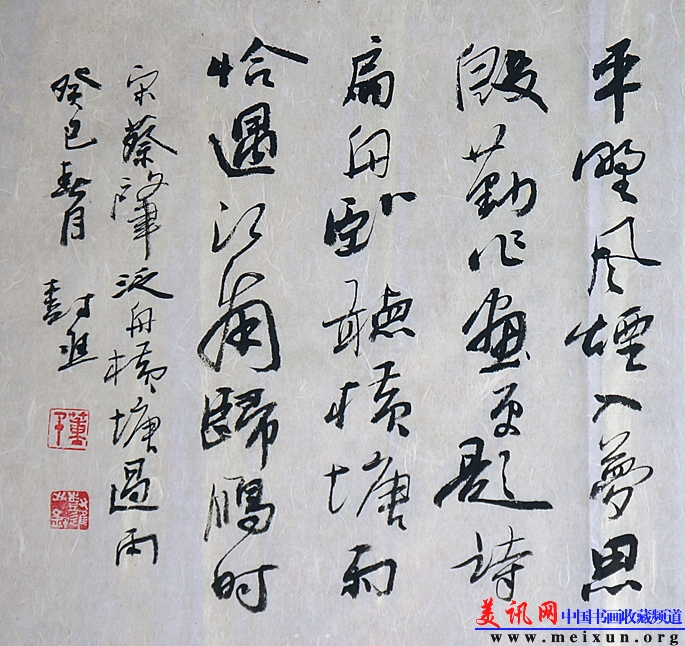 平野风煙入夢思
殷勤作畫更题詩
扁舟卧聽横塘雨
恰遇江南歸鴈时
宋蔡肇泛舟横塘過雨
癸巳春月
美讯网 中国书画收藏频道
www.meixun.org